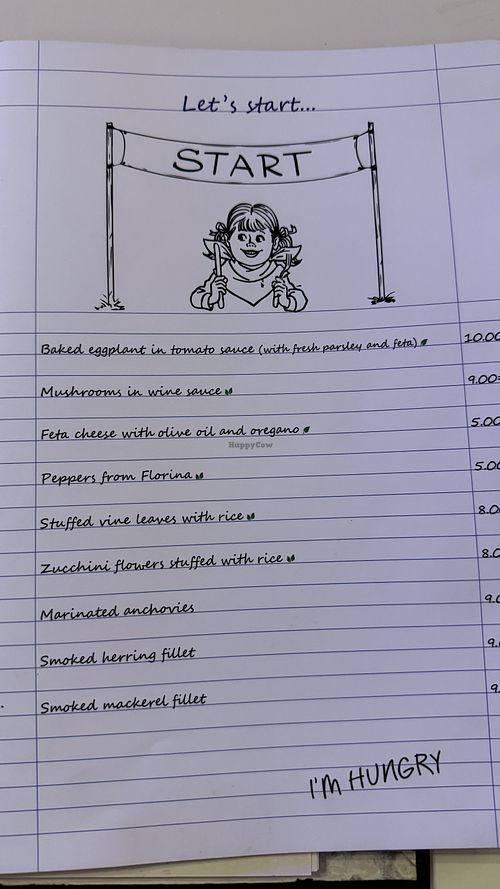 Let's start...
START
Baked eggplant in tomato sauce (with fresh parsley and feta) 10.00
Mushrooms in wine sauce 9.00
Feta cheese with olive oil and oregano 5.00
HappyCow
Peppers from Florina 5.00
Stuffed vine leaves with rice 8.0
Zucchini flowers stuffed with rice 8.0
Marinated anchovies 9.0
Smoked herring fillet 9.
Smoked mackerel fillet 9.
I'M HUNGRY